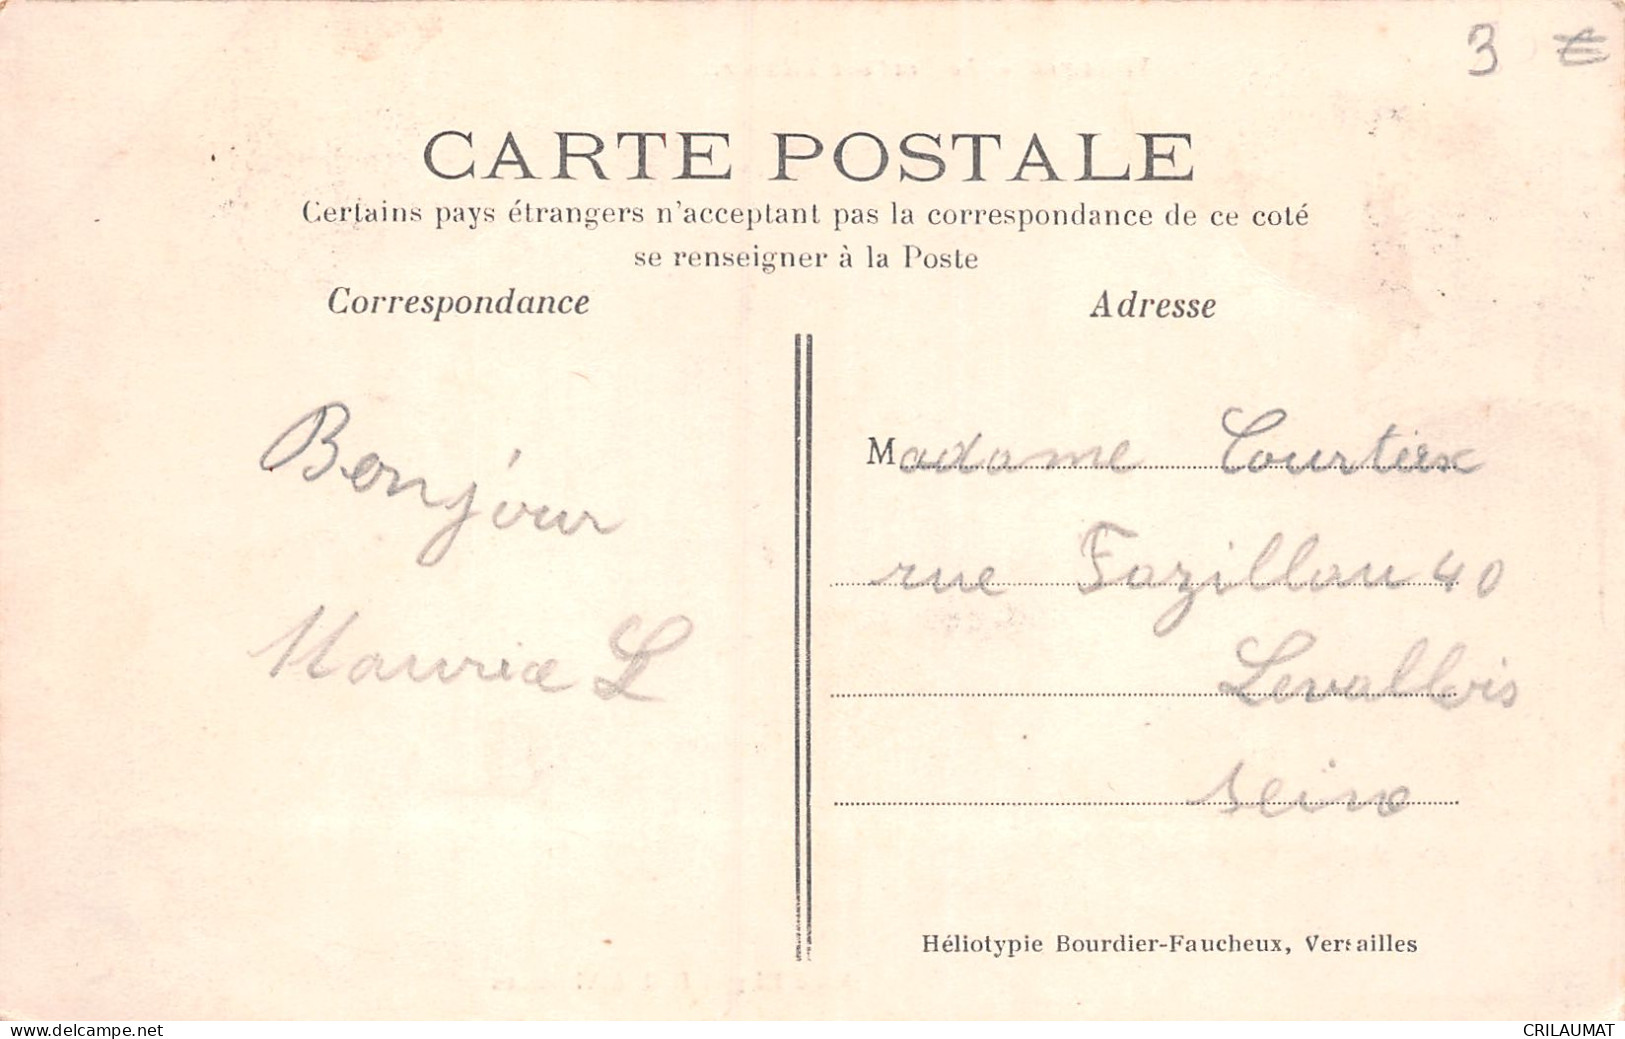 3 €
CARTE POSTALE
Certains pays étrangers n'acceptant pas la correspondance de ce coté
se renseigner à la Poste
Correspondance
Adresse
Bonjour
Maurice L
Madame Courtieux
rue Fazillau 40
Levallois
Seine
Héliotypie Bourdier-Faucheux, Versailles
www.delcampe.net
CRILAUMAT